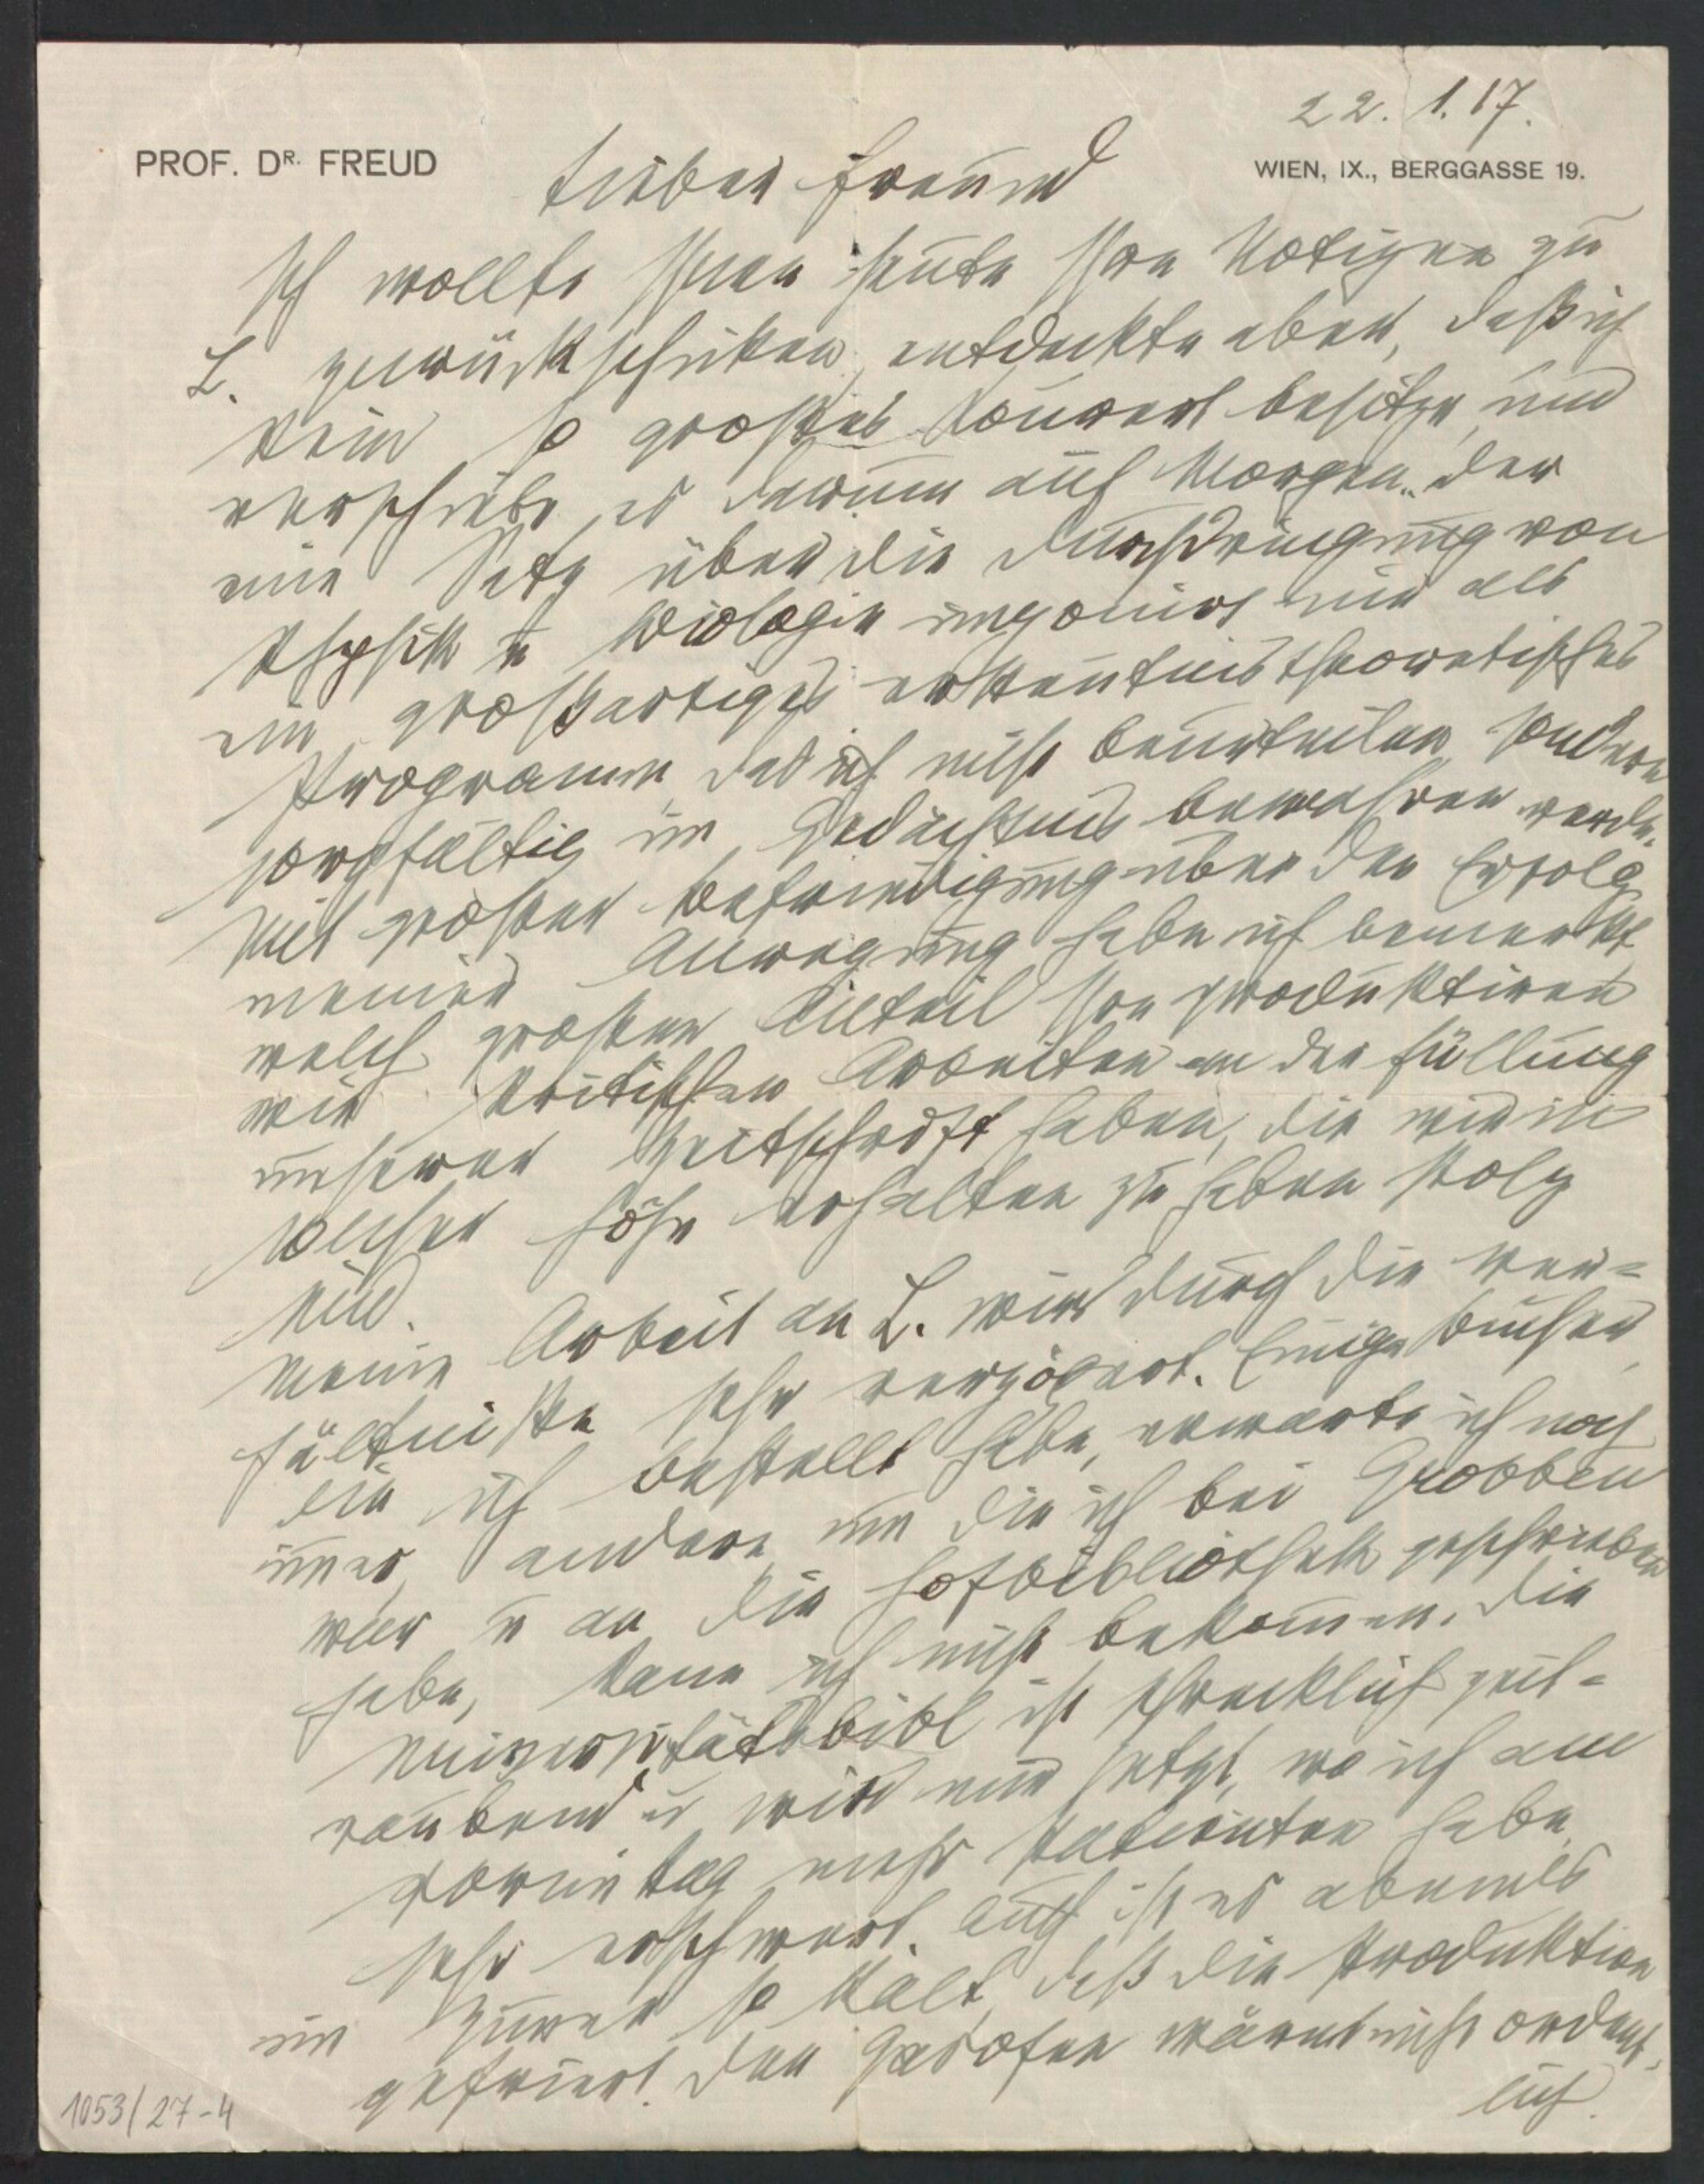 22. 1. 17.
PROF. DR. FREUD
WIEN, IX., BERGGASSE 19.
Lieber Freund
Ich wollte Ihnen heute Ihre Notizen zu
L. zurückschicken, entdeckte aber, daß ich
kein so großes Kouvert besitze, und
verschiebe es darum auf Morgen. Der
eine Satz über die Durchdringung von
Physik u Biologie imponirt mir als
ein großartiges erkenntnistheoretisches
Programm, das ich nicht beurteilen, sondern
sorgfältig im Gedächtnis bewahren werde.
Mit großer Befriedigung über den Erfolg
meiner Anregung habe ich bemerkt,
welch großen Anteil Ihre produktiven
wie kritischen Arbeiten an der Füllung
unserer Zeitschrift haben, die wir in
solcher Höhe erhalten zu haben stolz
sind.
Meine Arbeit an L. wird durch die Ver-
hältniße sehr verzögert. Einige Bücher,
die ich bestellt habe, erwarte ich noch
immer, andere, um die ich bei Grobben
war u an die Hofbibliothek geschrieben
habe, kann ich nicht bekommen. Die
Universitätsbibl ist schrecklich zeit-
raubend u wird mir jetzt, wo ich am
Vormittag mehr Patienten habe,
sehr erschwert. Auch ist es abends
im Zimmer so kalt, daß die Produktion
gefriert. Der Gasofen wärmt nicht ordent-
lich.
1053/27-4